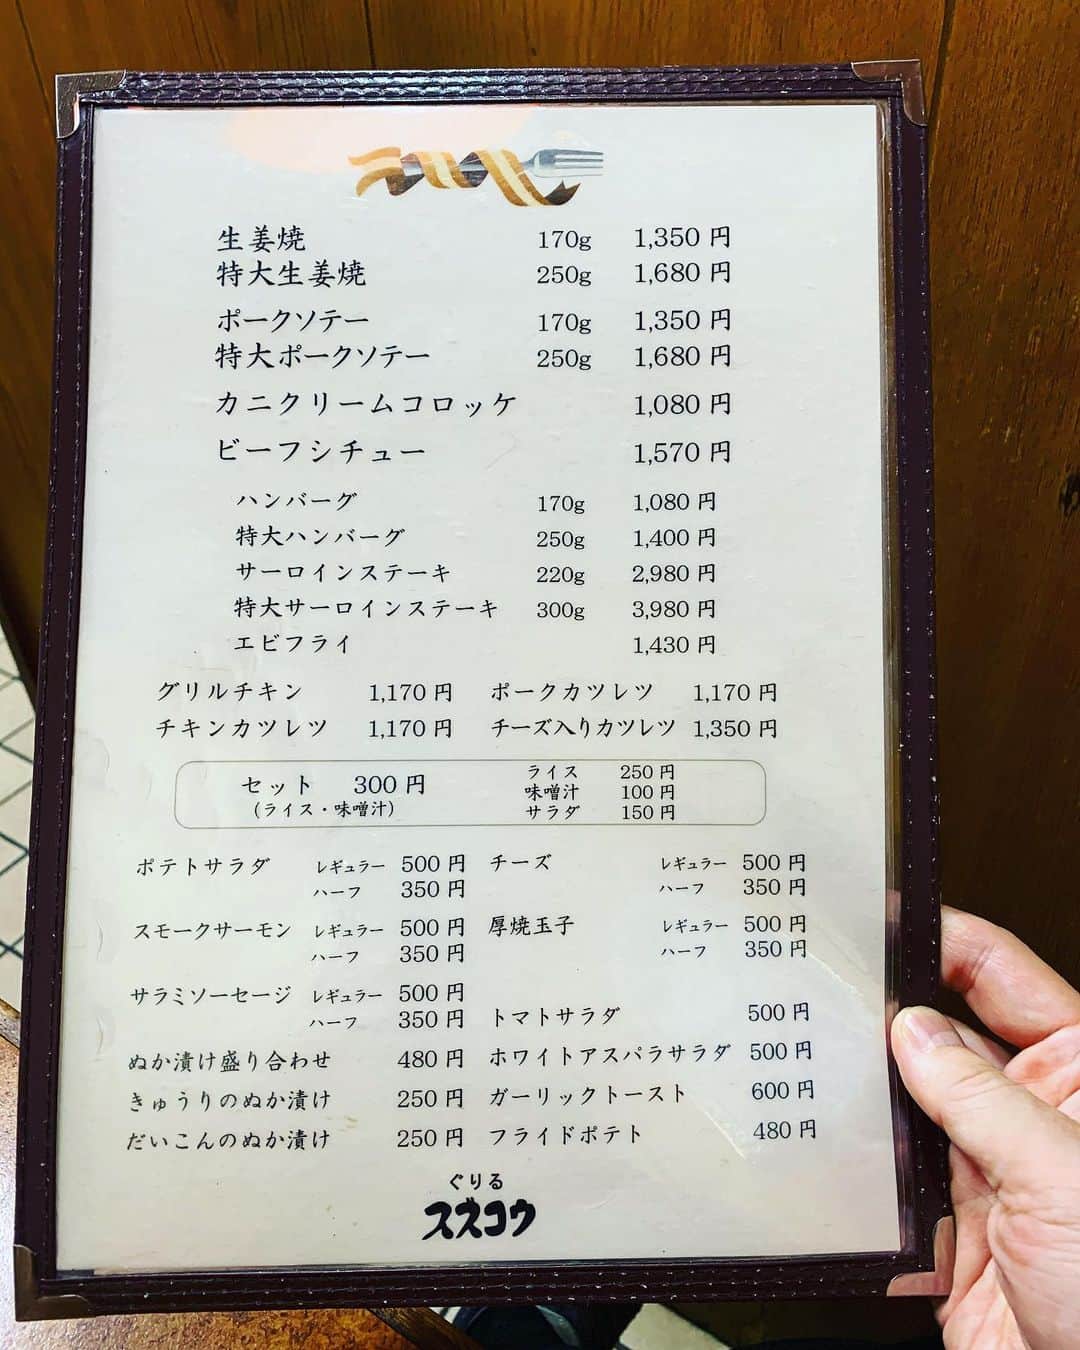 生姜焼 170g 1,350 円
特大生姜焼 250g 1,680 円
ポークソテー 170g 1,350 円
特大ポークソテー 250g 1,680 円
カニクリームコロッケ 1,080 円
ビーフシチュー 1,570 円
ハンバーグ 170g 1,080 円
特大ハンバーグ 250g 1,400 円
サーロインステーキ 220g 2,980 円
特大サーロインステーキ 300g 3,980 円
エビフライ 1,430 円
グリルチキン 1,170 円 ポークカツレツ 1,170 円
チキンカツレツ 1,170 円 チーズ入りカツレツ 1,350 円
セット 300 円
(ライス・味噌汁)
ライス 250 円
味噌汁 100 円
サラダ 150 円
ポテトサラダ レギュラー 500 円 チーズ レギュラー 500 円
ハーフ 350 円 ハーフ 350 円
スモークサーモン レギュラー 500 円 厚焼玉子 レギュラー 500 円
ハーフ 350 円 ハーフ 350 円
サラミソーセージ レギュラー 500 円
ハーフ 350 円 トマトサラダ 500 円
ぬか漬け盛り合わせ 480 円 ホワイトアスパラサラダ 500 円
きゅうりのぬか漬け 250 円 ガーリックトースト 600 円
だいこんのぬか漬け 250 円 フライドポテト 480 円
ぐりる
スズコウ